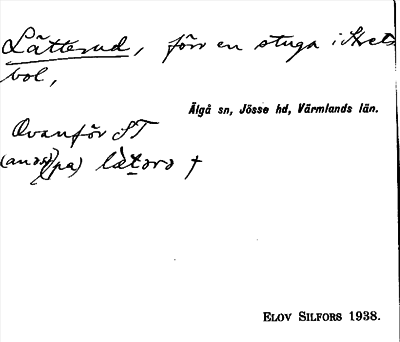 Lätterud, förr en stuga i Krets
bol,
Älgå sn, Jösse hd, Värmlands län.
Ovanför ST
på) †
ELOV SILFORS 1938.